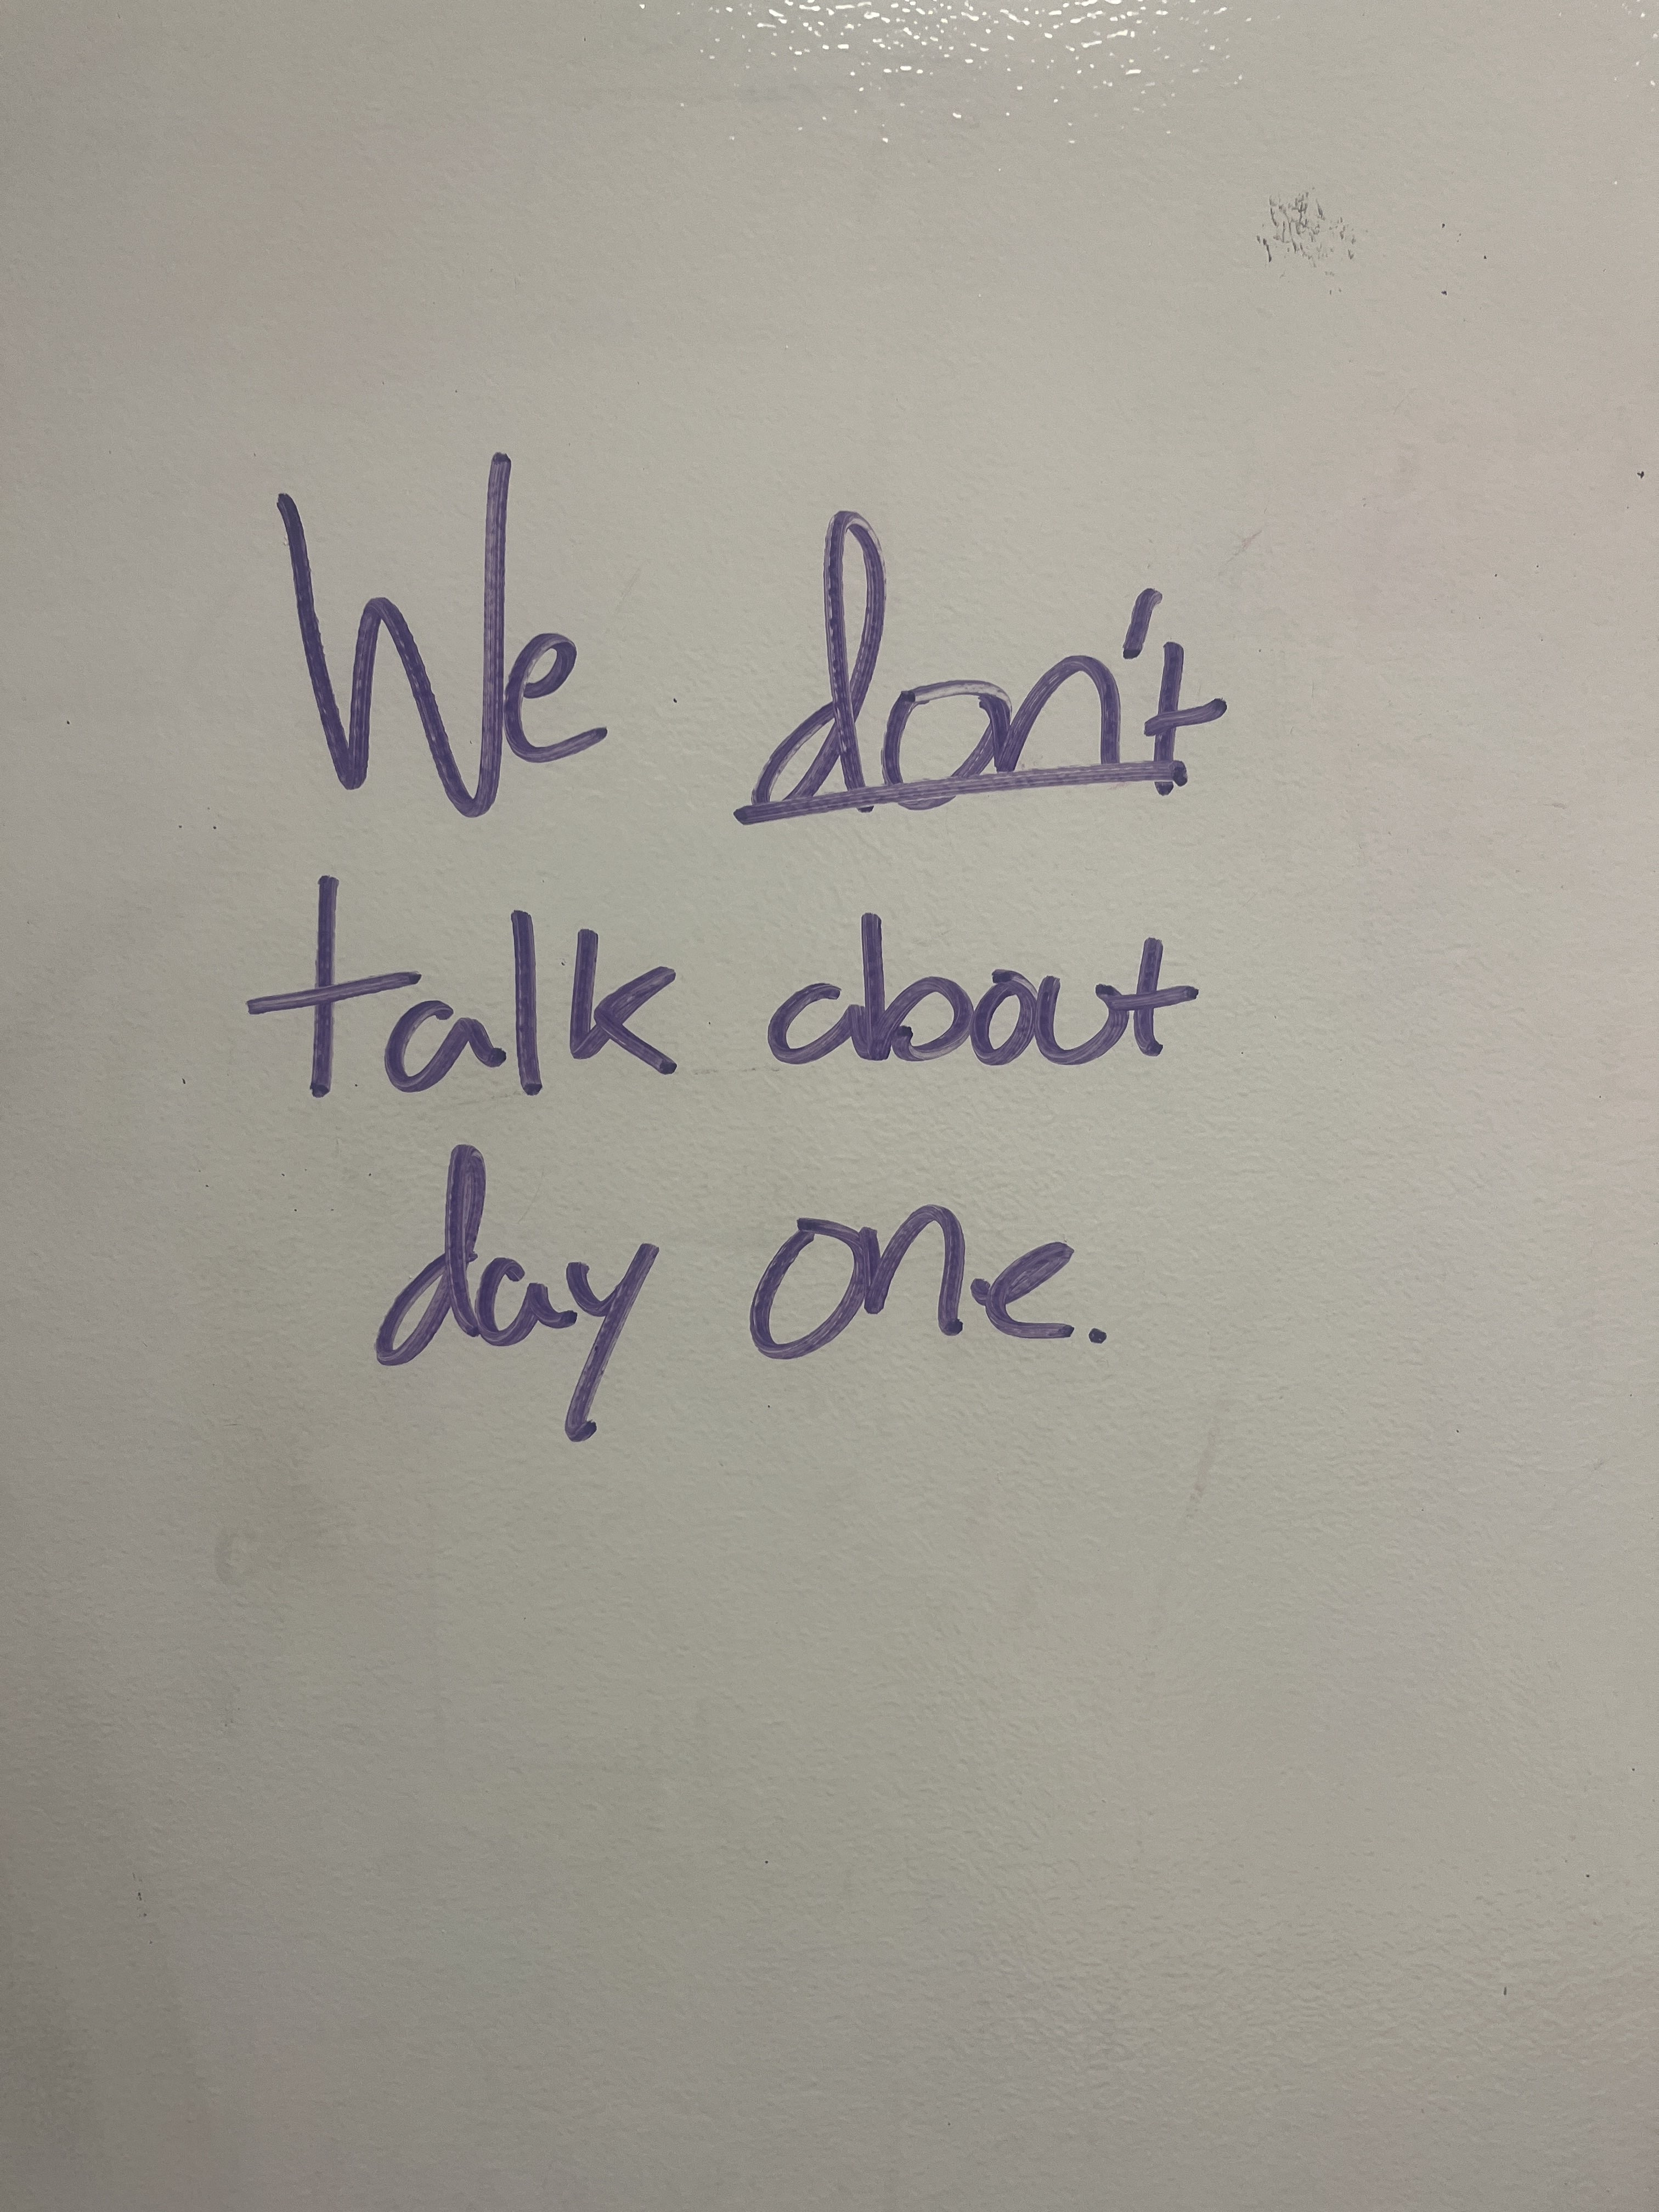 We don't
talk about
day one.